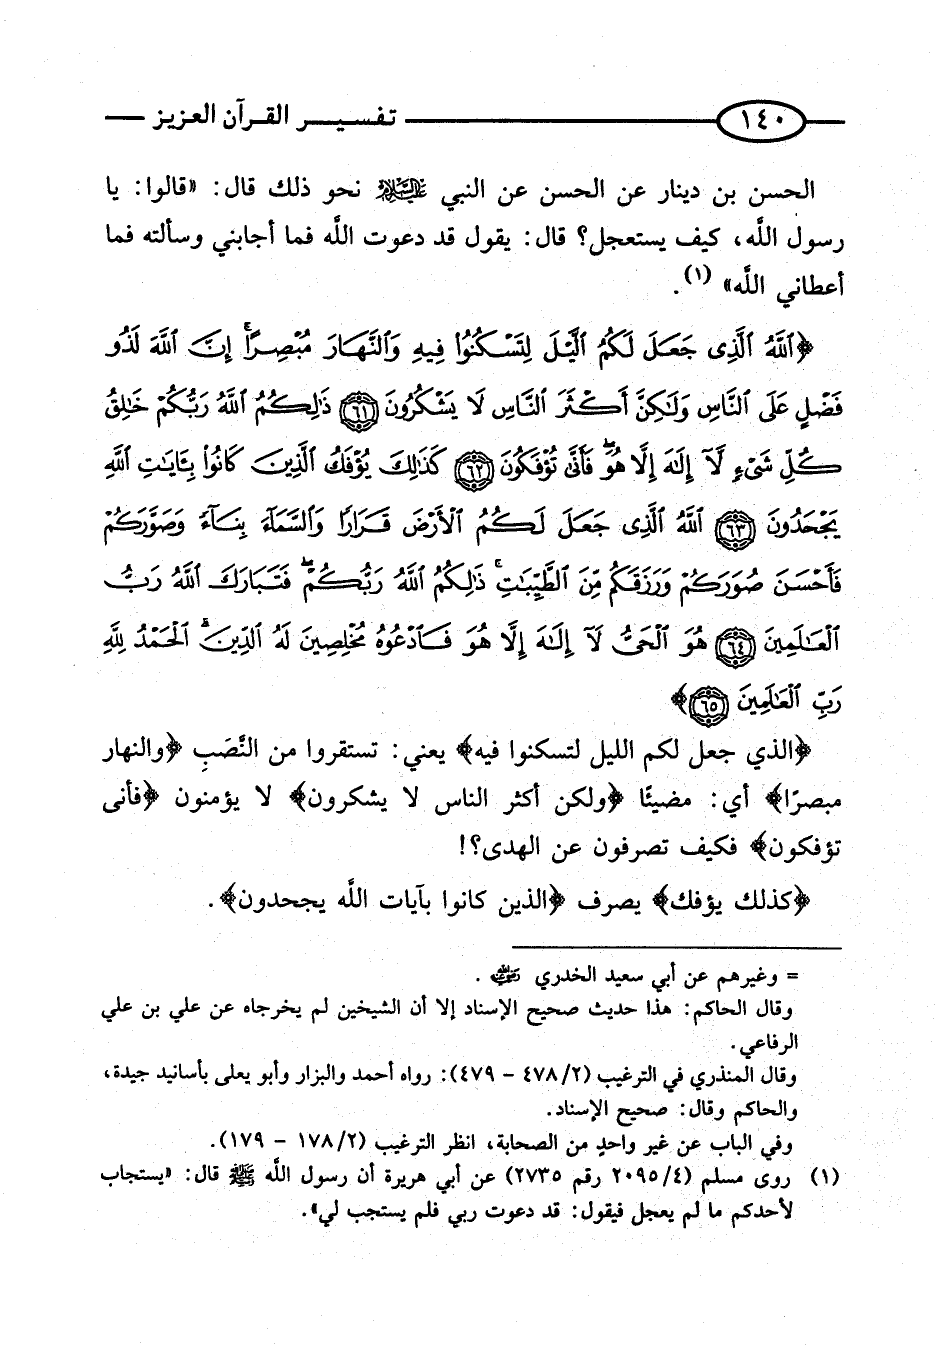 ١٤٠ تفسير القرآن العزيز
الحسن بن دينار عن الحسن عن النبي عليه السلام نحو ذلك قال: «قالوا: يا
رسول اللَّه، كيف يستعجل؟ قال: يقول قد دعوت اللَّه فما أجابني وسألته فما
أعطاني اللَّه» (١).
﴿ٱللَّهُ ٱلَّذِى جَعَلَ لَكُمُ ٱلَّيْلَ لِتَسْكُنُوا۟ فِيهِ وَٱلنَّهَارَ مُبْصِرًا ۚ إِنَّ ٱللَّهَ لَذُو
فَضْلٍ عَلَى ٱلنَّاسِ وَلَـٰكِنَّ أَكْثَرَ ٱلنَّاسِ لَا يَشْكُرُونَ ٦١ ذَٰلِكُمُ ٱللَّهُ رَبُّكُمْ خَـٰلِقُ
كُلِّ شَىْءٍ لَّآ إِلَـٰهَ إِلَّا هُوَ ۖ فَأَنَّىٰ تُؤْفَكُونَ ٦٢ كَذَٰلِكَ يُؤْفَكُ ٱلَّذِينَ كَانُوا۟ بِـَٔايَـٰتِ ٱللَّهِ
يَجْحَدُونَ ٦٣ ٱللَّهُ ٱلَّذِى جَعَلَ لَكُمُ ٱلْأَرْضَ قَرَارًا وَٱلسَّمَآءَ بِنَآءً وَصَوَّرَكُمْ
فَأَحْسَنَ صُوَرَكُمْ وَرَزَقَكُم مِّنَ ٱلطَّيِّبَـٰتِ ۚ ذَٰلِكُمُ ٱللَّهُ رَبُّكُمْ ۖ فَتَبَارَكَ ٱللَّهُ رَبُّ
ٱلْعَـٰلَمِينَ ٦٤ هُوَ ٱلْحَىُّ لَآ إِلَـٰهَ إِلَّا هُوَ فَٱدْعُوهُ مُخْلِصِينَ لَهُ ٱلدِّينَ ۗ ٱلْحَمْدُ لِلَّهِ
رَبِّ ٱلْعَـٰلَمِينَ ٦٥﴾
﴿الذي جعل لكم الليل لتسكنوا فيه﴾ يعني: تستقروا من النَّصَبِ ﴿والنهار
مبصرًا﴾ أي: مضيئًا ﴿ولكن أكثر الناس لا يشكرون﴾ لا يؤمنون ﴿فأنى
تؤفكون﴾ فكيف تصرفون عن الهدى؟!
﴿كذلك يؤفك﴾ يصرف ﴿الذين كانوا بآيات اللَّه يجحدون﴾.
= وغيرهم عن أبي سعيد الخدري رضي الله عنه .
وقال الحاكم: هذا حديث صحيح الإسناد إلا أن الشيخين لم يخرجاه عن علي بن علي
الرفاعي.
وقال المنذري في الترغيب (٢/ ٤٧٨ - ٤٧٩): رواه أحمد والبزار وأبو يعلى بأسانيد جيدة،
والحاكم وقال: صحيح الإسناد.
وفي الباب عن غير واحدٍ من الصحابة، انظر الترغيب (٢/ ١٧٨ - ١٧٩).
(١) روى مسلم (٤/ ٢٠٩٥ رقم ٢٧٣٥) عن أبي هريرة أن رسول اللَّه ﷺ قال: «يستجاب
لأحدكم ما لم يعجل فيقول: قد دعوت ربي فلم يستجب لي».